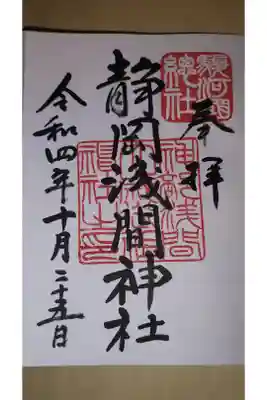 奉拝
駿河國
總社
静岡浅間神社
令和四年十月二十五日